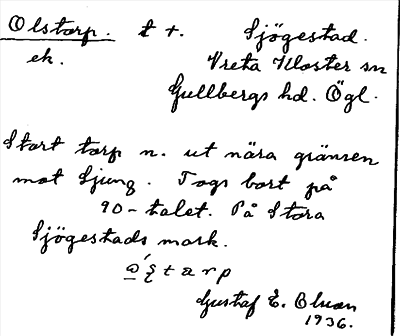 Olstorp. t +. Sjögestad.
ek. Vreta Kloster sn
Gullbergs hd. Ögl.
Stort torp n. ut nära gränsen
mot Ljung. Togs bort på
90-talet. På Stora
Sjögestads mark.
Gustaf E.
1936.